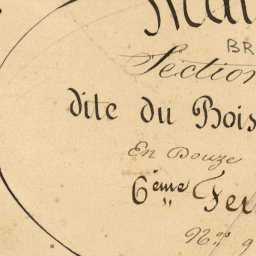 BR
Section
dite du Bois
En Douze
6ème Feu
N.os 9